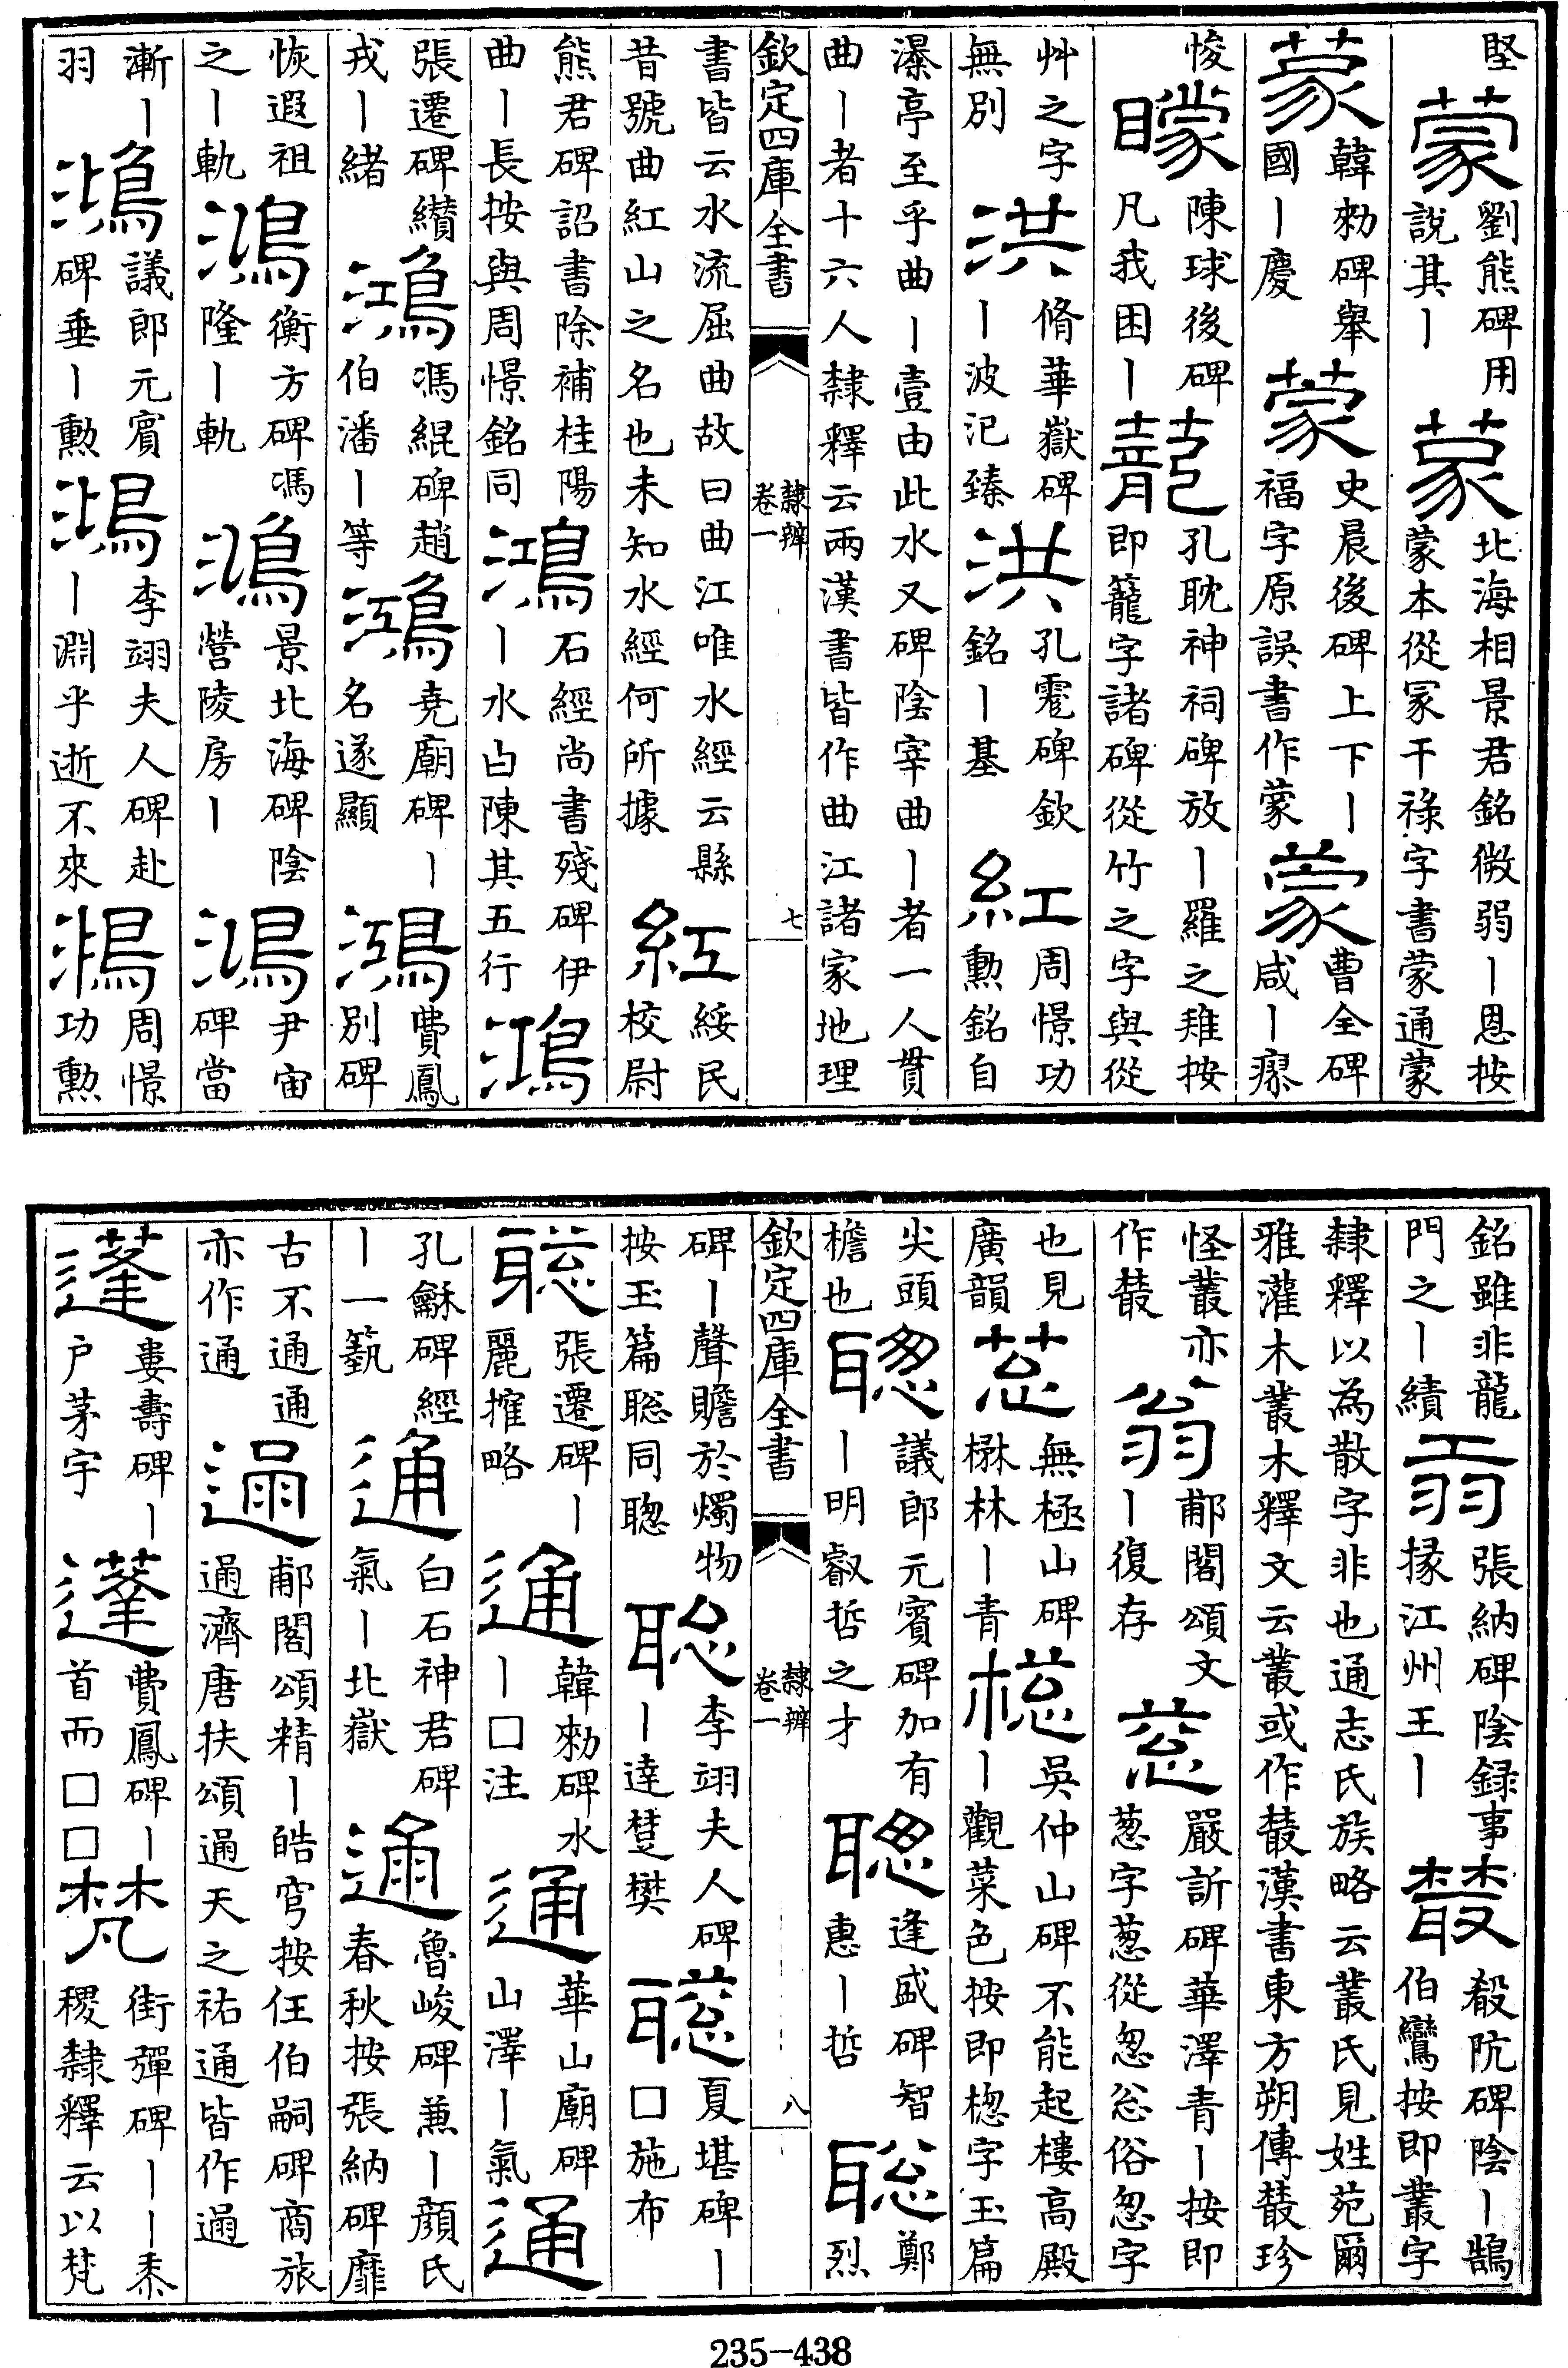 堅蒙劉熊碑用說其丨蒙北海相景君銘微弱丨恩按蒙本從冡干祿字書蒙通蒙
蒙韓勑碑舉國丨慶蒙史晨後碑上下丨福字原誤書作蒙蒙曹全碑咸丨瘳
悛矇陳球後碑凡我困丨蘢孔耽神祠碑放丨羅之雉按即籠字諸碑從竹之字與從
艸之字無別洪脩華嶽碑丨波汜臻洪孔碑欽銘丨基紅周憬功勲銘自
瀑亭至乎曲丨壹由此水又碑陰宰曲丨者一人貫曲丨者十六人隸釋云兩漢書皆作曲江諸家地理
欽定四庫全書 隸辨卷一 七
書皆云水流屈曲故曰曲江唯水經云縣昔號曲紅山之名也未知水經何所據紅綏民校尉
熊君碑詔書除補桂陽曲丨長按與周憬銘同鴻石經尚書殘碑伊丨水白陳其五行鴻
張遷碑纘戎丨緒鴻馮緄碑趙伯潘丨等鴻堯廟碑丨名遂顯鴻費鳳別碑
恢遐祖之丨軌鴻衡方碑馮隆丨軌鴻景北海碑陰營陵房丨鴻尹宙碑當
漸丨羽鴻議郎元賓碑垂丨勲鴻李翊夫人碑赴丨淵乎逝不來鴻周憬功勲
銘雖非龍門之丨績翁張納碑陰錄事掾江州王丨叢殽阬碑陰丨鵠伯鸞按即叢字
隸釋以為散字非也通志氏族略云叢氏見姓苑爾雅灌木叢木釋文云叢或作藂漢書東方朔傳藂珍
怪叢亦作藂翁郙閣頌文丨復存蔥嚴訢碑華澤青丨按即蔥字蔥從悤忩俗忽字
也見廣韻蔥無極山碑楙林丨青樬吳仲山碑不能起樓高殿丨觀菜色按即樬字玉篇
尖頭檐也聰議郎元賓碑加有丨明叡哲之才聰逢盛碑智惠丨哲聰鄭烈
欽定四庫全書 隸辨卷一 八
碑丨聲贍於燭物按玉篇聡同聰聡李翊夫人碑丨達楚樊聰夏堪碑丨囗施布
聰張遷碑丨麗摧略通韓勑碑水丨囗注通華山廟碑山澤丨氣通
孔龢碑經丨一蓺通白石神君碑氣丨北嶽通魯峻碑兼丨顏氏春秋按張納碑靡
古不通通亦作通通郙閣頌精丨皓穹按任伯嗣碑商旅通濟唐扶頌通天之祐通皆作通
蓬婁壽碑丨戶茅宇蓬費鳳碑丨首而囗囗梵街彈碑丨丨黍稷隸釋云以梵
235-438